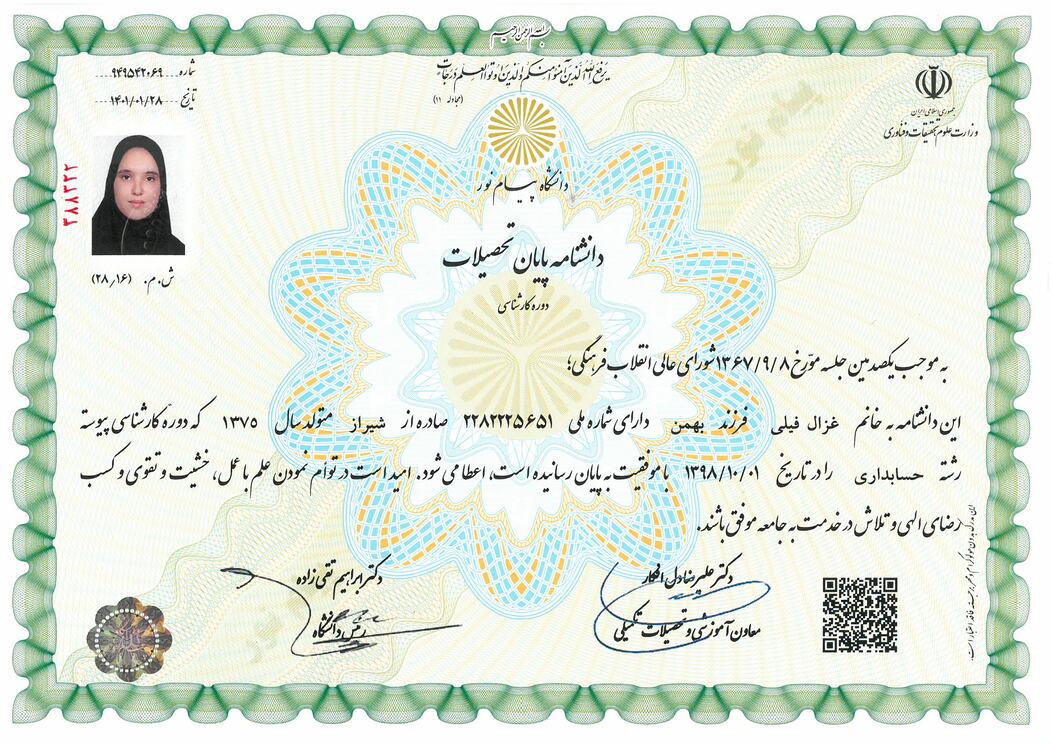 بسم الله الرحمن الرحیم
یرفع الله الذین آمنوا منکم والذین اوتوا العلم درجات
(مجادله ۱۱)
جمهوری اسلامی ایران
وزارت علوم تحقیقات و فناوری
شماره ۹۴۹۵۴۲۰۶۹
تاریخ ۱۴۰۱/۰۱/۲۸
۳۸۸۳۲۲
ش.م. (۲۸٫۱۶)
پیام نور
دانشگاه پیام نور
دانشنامه پایان تحصیلات
دوره کارشناسی
به موجب یکصدمین جلسه مورّخ ۱۳۶۷/۹/۸ شورای عالی انقلاب فرهنگی؛
این دانشنامه به خانم غزال فیلی فرزند بهمن دارای شماره ملی ۲۲۸۲۲۲۵۶۵۱ صادره از شیراز متولد سال ۱۳۷۵ که دوره کارشناسی پیوسته
رشته حسابداری را در تاریخ ۱۳۹۸/۱۰/۰۱ با موفقیت به پایان رسانیده است، اعطا می شود. امید است در توأم نمودن علم با عمل، خشیت و تقوی و کسب
رضای الهی و تلاش در خدمت به جامعه موفق باشند.
دکتر علیرضا دل افکار
معاون آموزشی و تحصیلات تکمیلی
دکتر ابراهیم تقی زاده
رئیس دانشگاه
این مدرک بدون هولوگرام و مهر برجسته فاقد اعتبار است.